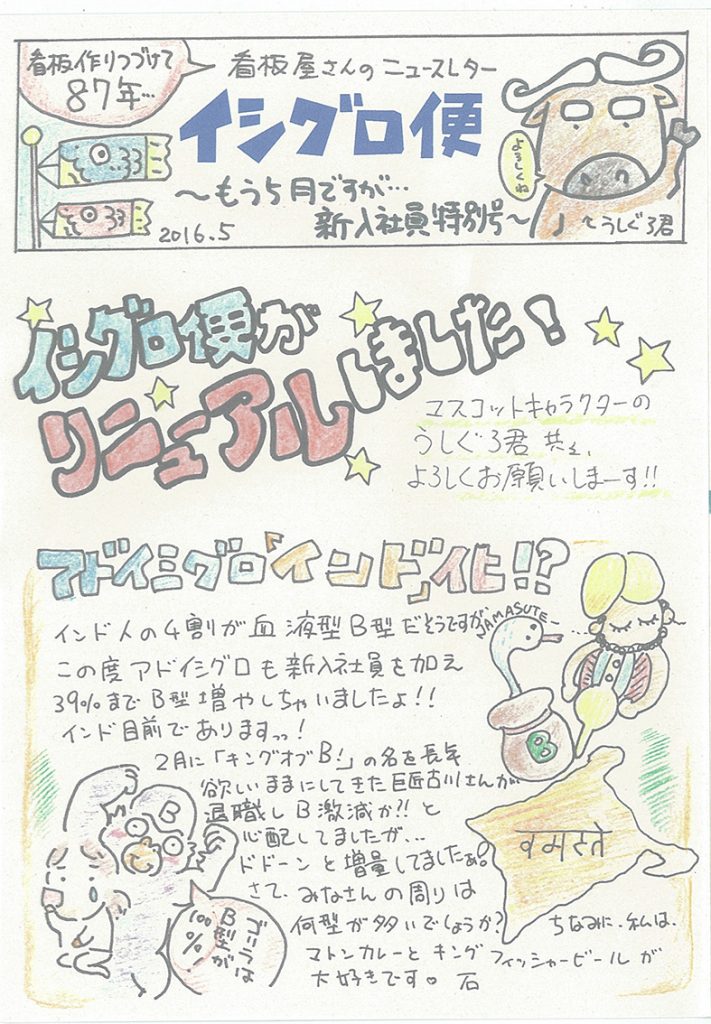 看板作りつづけて
87年…
看板屋さんのニュースレター
イシグロ便
よろしくね
〜もう5月ですが…
新入社員特別号〜
2016.5
うしぐろ君
イシグロ便が
リニューアルしました!
マスコットキャラクターの
うしぐろ君共々、
よろしくお願いしまーす!!
アドイシグロ「インド」化!?
インド人の4割が血液型B型だそうですが、
JAMASUTE〜
この度アドイシグロも新入社員を加え
39%までB型増やしちゃいましたよ!!
インド目前でありますっ!
B
2月に「キングオブB!」の名を長年
欲しいままにしてきた巨匠古川さんが
退職しB激減か?!と
心配してましたが、..
ドドーンと増量してましたぁ。
さて、みなさんの周りは
何型が多いでしょうか?
B
ゴリラは
B型が
100%
नमस्ते
ちなみに、私は、
マトンカレーとキングフィッシャービールが
大好きです。 石